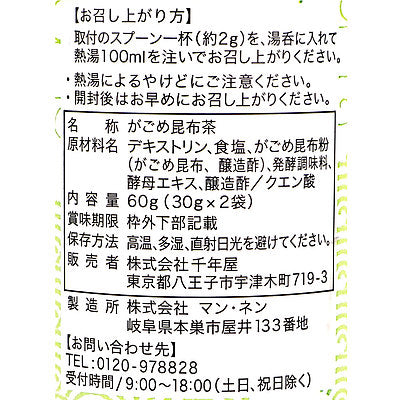 【お召し上がり方】
取付のスプーン一杯(約2g)を、湯呑に入れて
熱湯100mlを注いでお召し上がりください。
・熱湯によるやけどにご注意ください。
・開封後はお早めにお召し上がりください。
名 称 がごめ昆布茶
原材料名 デキストリン、食塩、がごめ昆布粉
(がごめ昆布、醸造酢)、発酵調味料、
酵母エキス、醸造酢/クエン酸
内容量 60g(30g×2袋)
賞味期限 枠外下部記載
保存方法 高温、多湿、直射日光を避けてください。
販売者 株式会社 千年屋
東京都八王子市宇津木町719-3
製造所 株式会社 マン・ネン
岐阜県本巣市屋井133番地
【お問い合わせ先】
TEL:0120-978828
受付時間/9:00~18:00(土日、祝日除く)